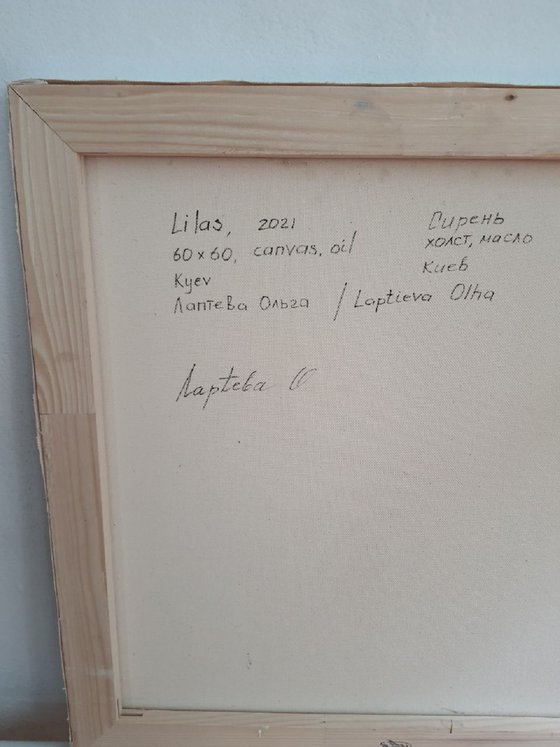 Lilas, 2021
Сирень
60x60, canvas, oil
холст, масло
Kyev
Киев
Лаптева Ольга / Laptieva Olha
Лартева О